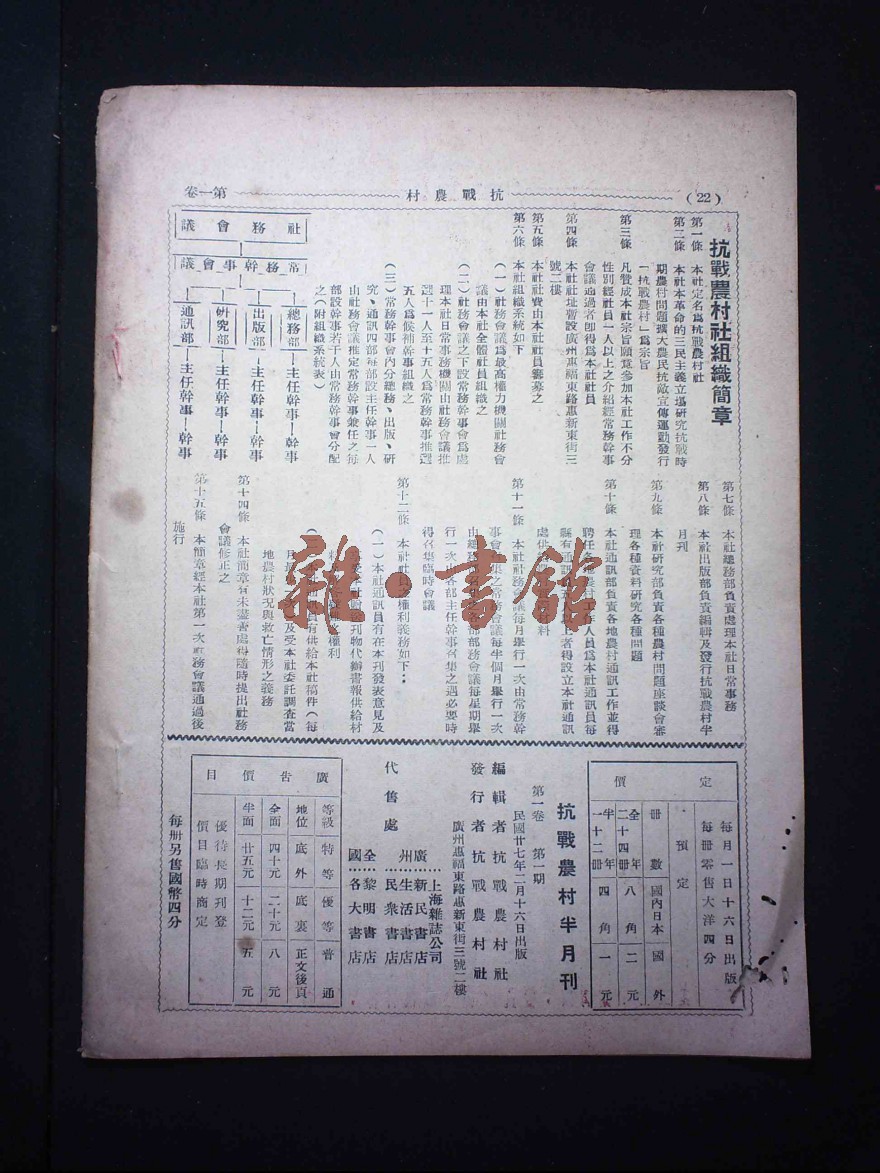 (22)
抗戰農村
第一卷
抗戰農村社組織簡章
第一條 本社定名爲抗戰農村社
第二條 本社本革命的三民主義立場研究抗戰時
期農村問題擴大農民抗敵宣傳運動發行
「抗戰農村」爲宗旨
第三條 凡贊成本社宗旨願意參加本社工作不分
性別經社員一人以上之介紹經常務幹事
會議通過者即得爲本社社員
第四條 本社社址暫設廣州惠福東路惠新東街三
號二樓
第五條 本社社費由本社社員籌募之
第六條 本社組織系統如下
(一)社務會議爲最高權力機關社務會
議由本社全體社員組織之
(二)社務會議之下設常務幹事會爲處
理本社日常事務機關由社務會議推
選十一人至十五人爲常務幹事推選
五人爲候補幹事組織之
(三)常務幹事會內分總務、出版、研
究、通訊四部每部設主任幹事一人
由社務會議推定常務幹事兼任之每
部設幹事若干人由常務幹事會分配
之(附組織系統表)
社務會議
常務幹事會議
總務部—主任幹事—幹事
出版部—主任幹事—幹事
研究部—主任幹事—幹事
通訊部—主任幹事—幹事
第七條 本社總務部負責處理本社日常事務
第八條 本社出版部負責編輯及發行抗戰農村半
月刊
第九條 本社研究部負責各種農村問題座談會審
理各種資料研究各種問題
第十條 本社通訊部負責各地農村通訊工作並得
聘任各地農村工作人員爲本社通訊員每
縣有通訊員上者得設立本社通訊
處供料
第十一條 本社社務會議每月舉行一次由常務幹
事會召集之常務會議每半個月舉行一次
由總務各部部務會議每星期舉
行一次由各部主任幹事召集之遇必要時
得召集臨時會議
第十二條 本社社員之權利義務如下：
(一)本社通訊員有在本刊發表意見及
刊物代辦書報供給材
權利
員有供給本社稿件(每
月及受本社委託調查當
地農村狀況與救亡情形之義務
第十四條 本社簡章有未盡善處得隨時提出社務
會議修正之
第十五條 本簡章經本社第一次社務會議通過後
施行
定價
每月一日十六日出版
每冊零售大洋四分
預定
冊數 國內日本 國外
全年二十四冊 八角 二元
半年一十二冊 四角 一元
抗戰農村半月刊
第一卷 第一期
民國廿七年二月十六日出版
編輯者 抗戰農村社
發行者 抗戰農村社
廣州惠福東路惠新東街三號二樓
代售處
上海雜誌公司
廣州……新民書店
生活書店
民衆書店
黎明書店
全國……各大書店
廣告價目
等級 特等 優等 普通
地位 底外 底裏 正文後頁
全面 四十元 二十元 八元
半面 廿五元 十二元 五元
優待長期刊登
價目臨時商定
每册另售國幣四分
雜·書館